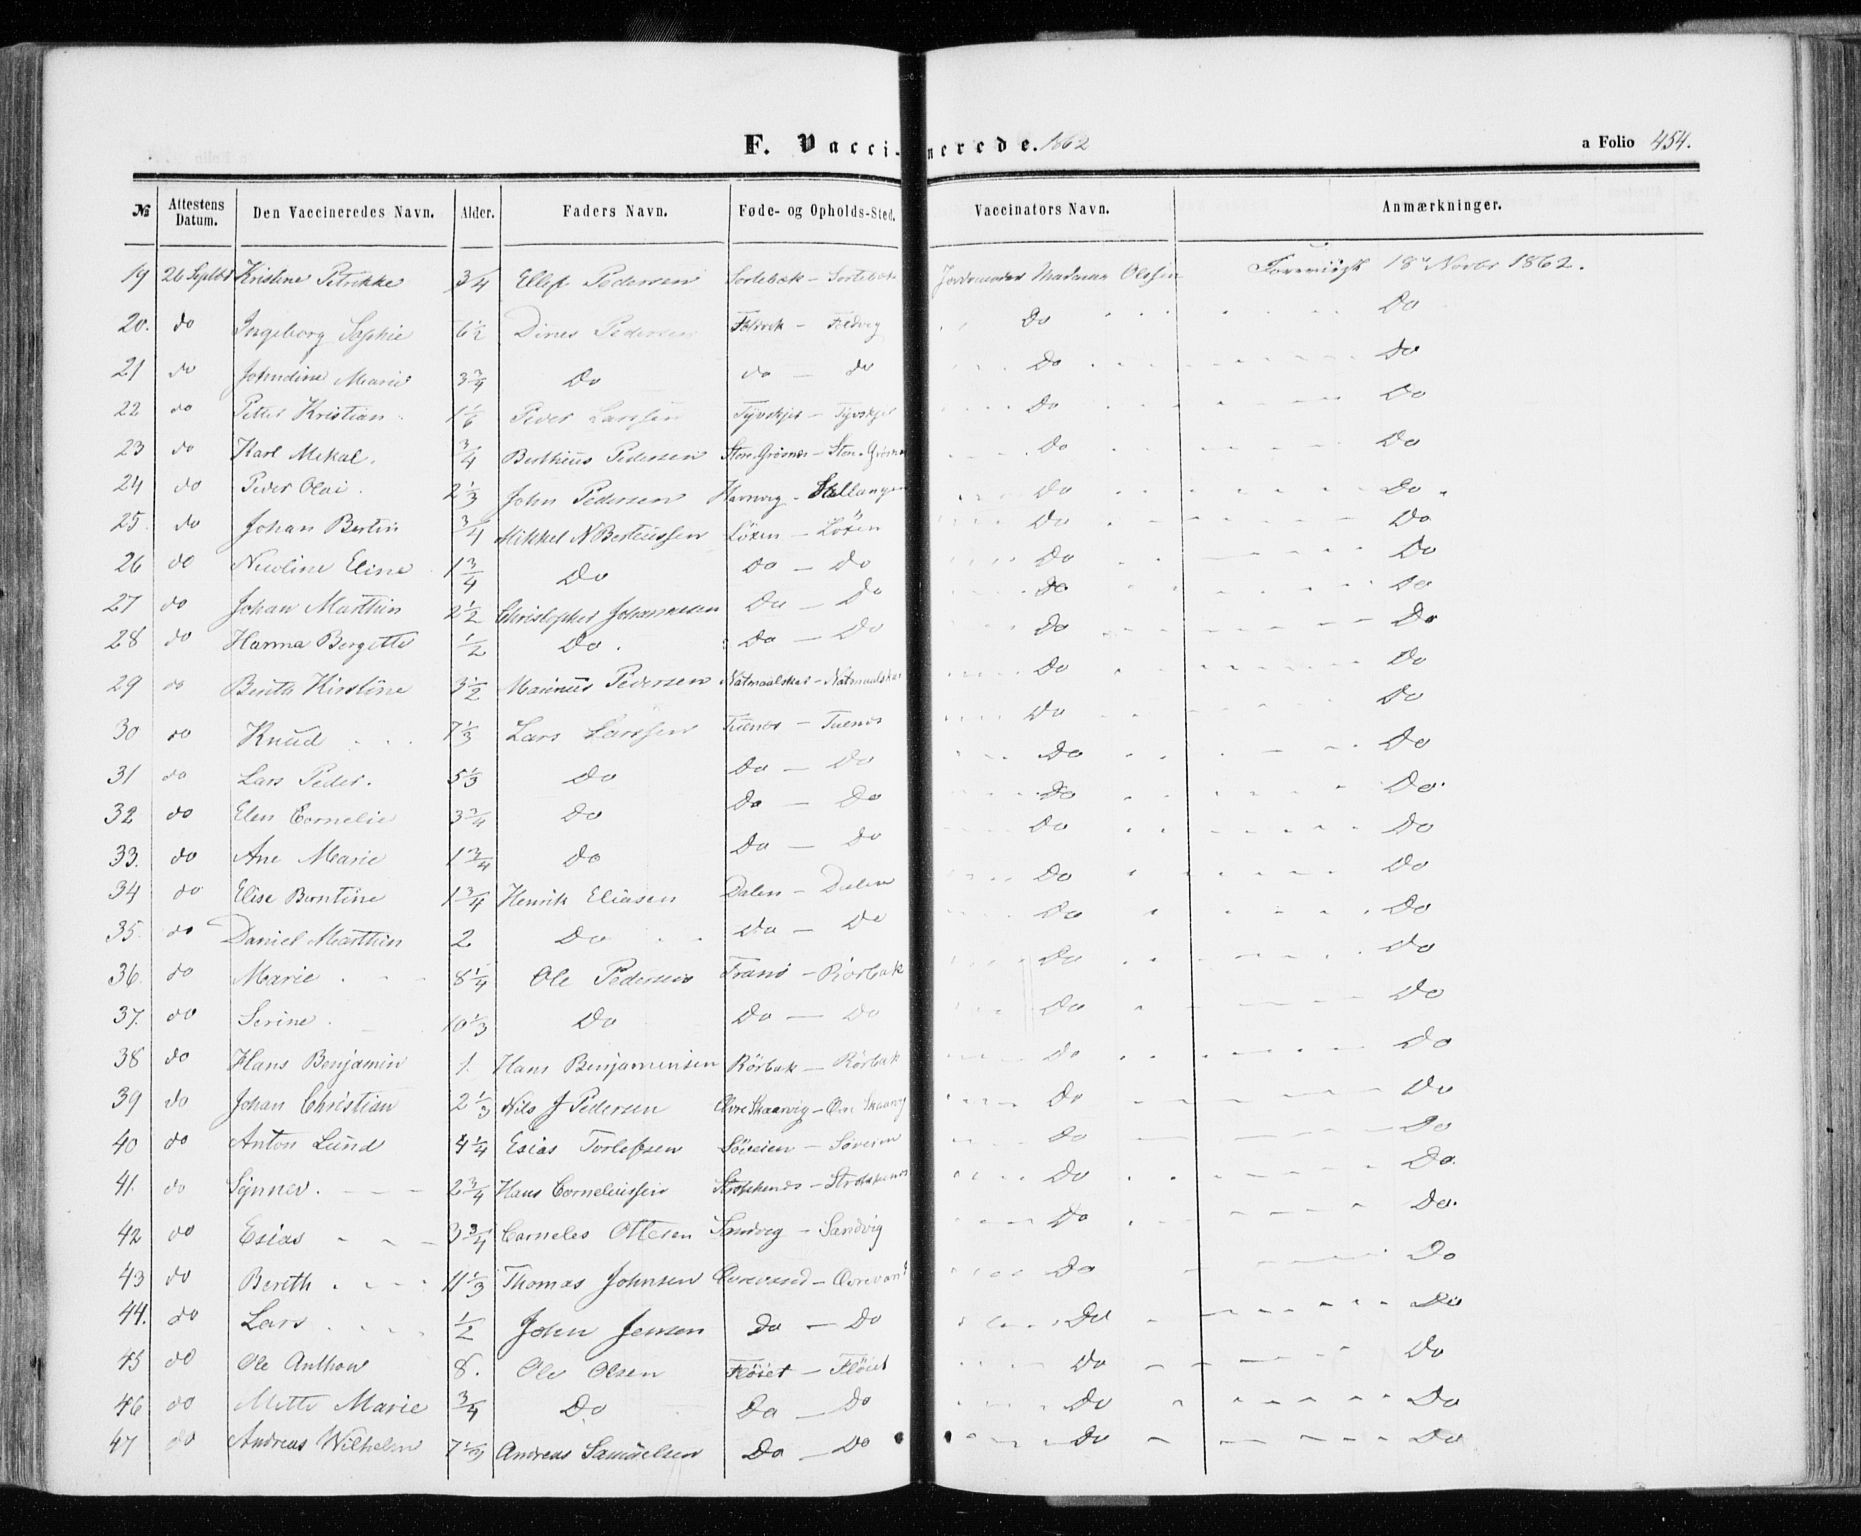 F. Vaccinerede. 1862 a Folio 454.
№ Attestens Datum. Den Vaccineredes Navn. Alder. Faders Navn. Føde- og Opholds-Sted. Vaccinators Navn. Anmærkninger.
19 26 Septbr Kristine Petrikke 3/4 Ellef Pedersen Sortebæk - Sortebæk Jordemoder Madame Olsen Foreviist 18de Novbr 1862.
20. do Ingeborg Sophie 6 1/2 Dines Pedersen Foldvik - Foldvig Do Do
21 do Johndine Marie 3 3/4 Do do - do Do Do
22 do Petter Kristian 1 1/6 Peder Larssen Tyvskjer - Tyvskjer Do Do
23 do Karl Mekal. 3/4 Bertheus Pedersen Steng.Grønnes - Sten.Grønnes Do Do
24 do Peder Olai. 2 1/3 John Pedersen Havnvig - Stallangen Do Do
25. do Johan Bertin 3/4 Mikkel N Berteussen Löxen - Löxen Do Do
26 do Nicoline Eline 1 3/4 Do do - do Do Do
27 do Johan Marthin 2 1/2 Christopher Johannesen Do - Do Do Do
28 do Hanna Bergette 1/2 Do. Do - Do Do Do
29 do Berith Kirstine 3 1/2 Marinus Pedersen Natmaalskar - Natmaalskar Do Do
30 do Knud 7 1/3 Lars Larssen Tuenes - Tuenes Do Do
31 do Lars Peder. 5 1/3 Do Do - Do Do Do
32 do Elen Cornelie 3 3/4 Do Do - Do Do Do.
33. do Ane Marie 1 3/4 Do Do - Do Do Do
34 do Elise Berntine 1 3/4 Henrik Eliasen Dalen - Dalen Do Do
35. do Daniel Marthin 2 Do Do - Do Do Do
36 do Marie 8 1/4 Ole Pedersen Tranö - Rörbak Do Do
37. do Serine. 10 1/3 Do Do - Do Do Do
38 do Hans Benjamin 1. Hans Benjaminsen Rörbak - Rörbak Do Do
39 do Johan Christian 2 1/3 Nils J Pedersen Øvre Skaarvig - Øvre Skaarvig Do Do
40 do Anton Lund 4 1/4 Esias Torlefsen Söveien - Söveien Do Do
41. do Synnev. 2 3/4 Hans Corneliussen Strokkenes - Strokkenes Do Do.
42 do Esias 3 3/4 Corneles Ottesen Sandvig - Sandvig Do Do.
43 do Bereth 11 1/3 Thomas Johnsen Øvrevand - Øvrevand Do Do
44. do Lars 1/2 John Jensen Do - Do Do Do
45 do Ole Anthon 8. Ole Olsen Flöiet - Flöiet Do Do
46 do Mette Marie 3/4 Do Do - Do Do Do
47 do Andreas Wilhelm 7 1/3 Andreas Samuelsen Do - Do Do Do